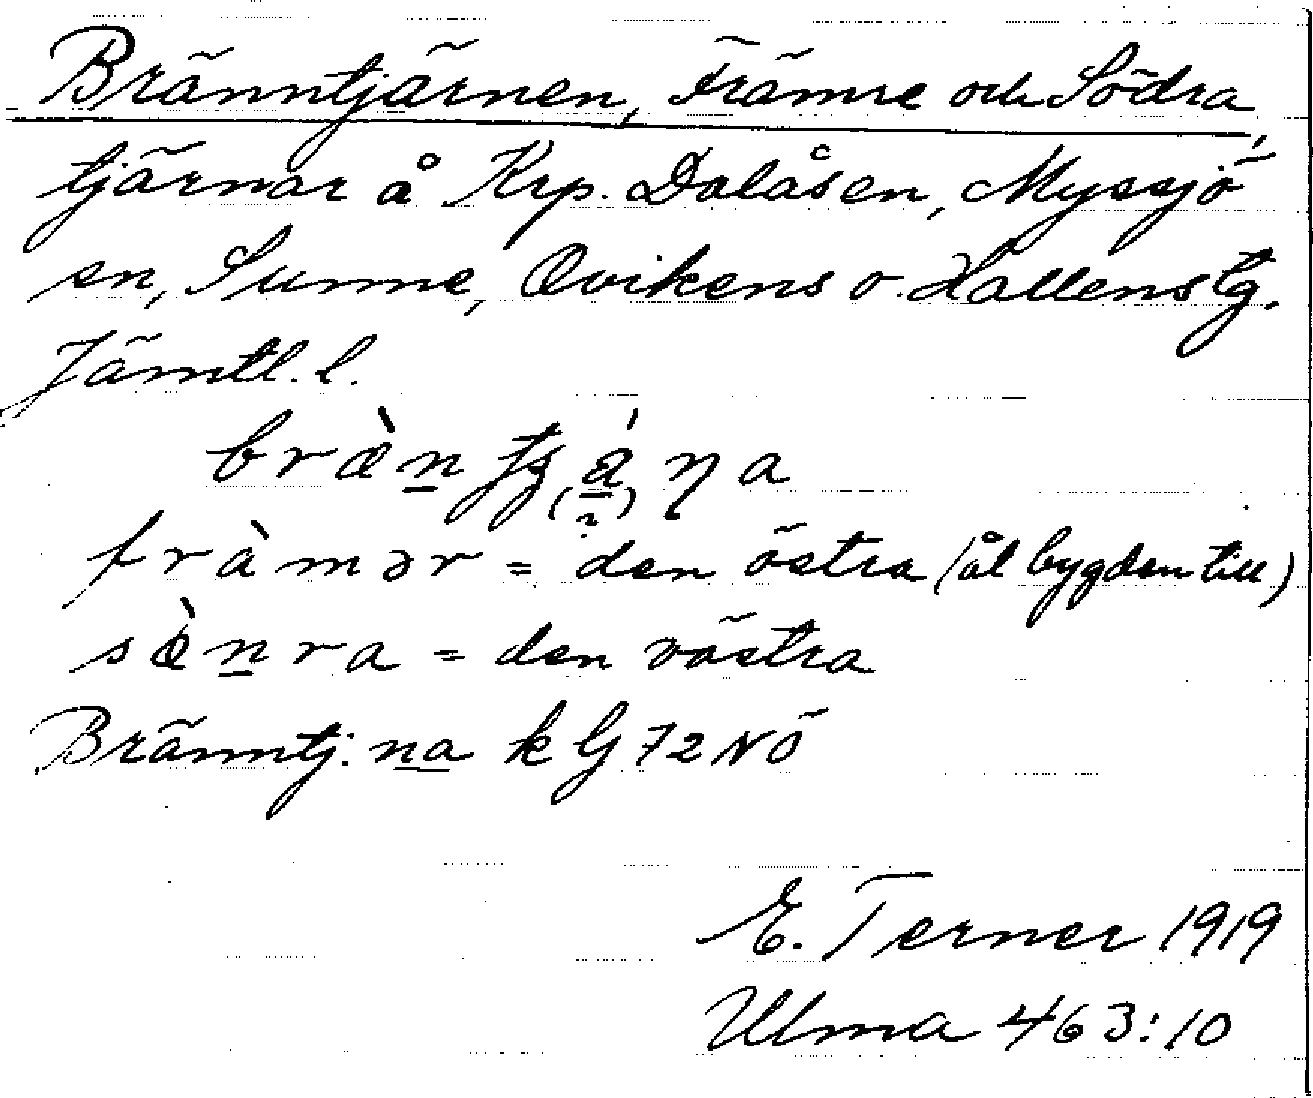 Bränntjärnen, Främre och Södra,
tjärnar å Krp. Dalåsen, Myssjö
sn, Sunne, Ovikens o. Hallens tg.
Jämtl. l.
bræ̀n̲
fràmər = den östra (åt bygden till)
sɵ̀n̲ra = den västra
Bränntj: na k G 72 NÖ
E. Terner 1919
Ulma 463:10